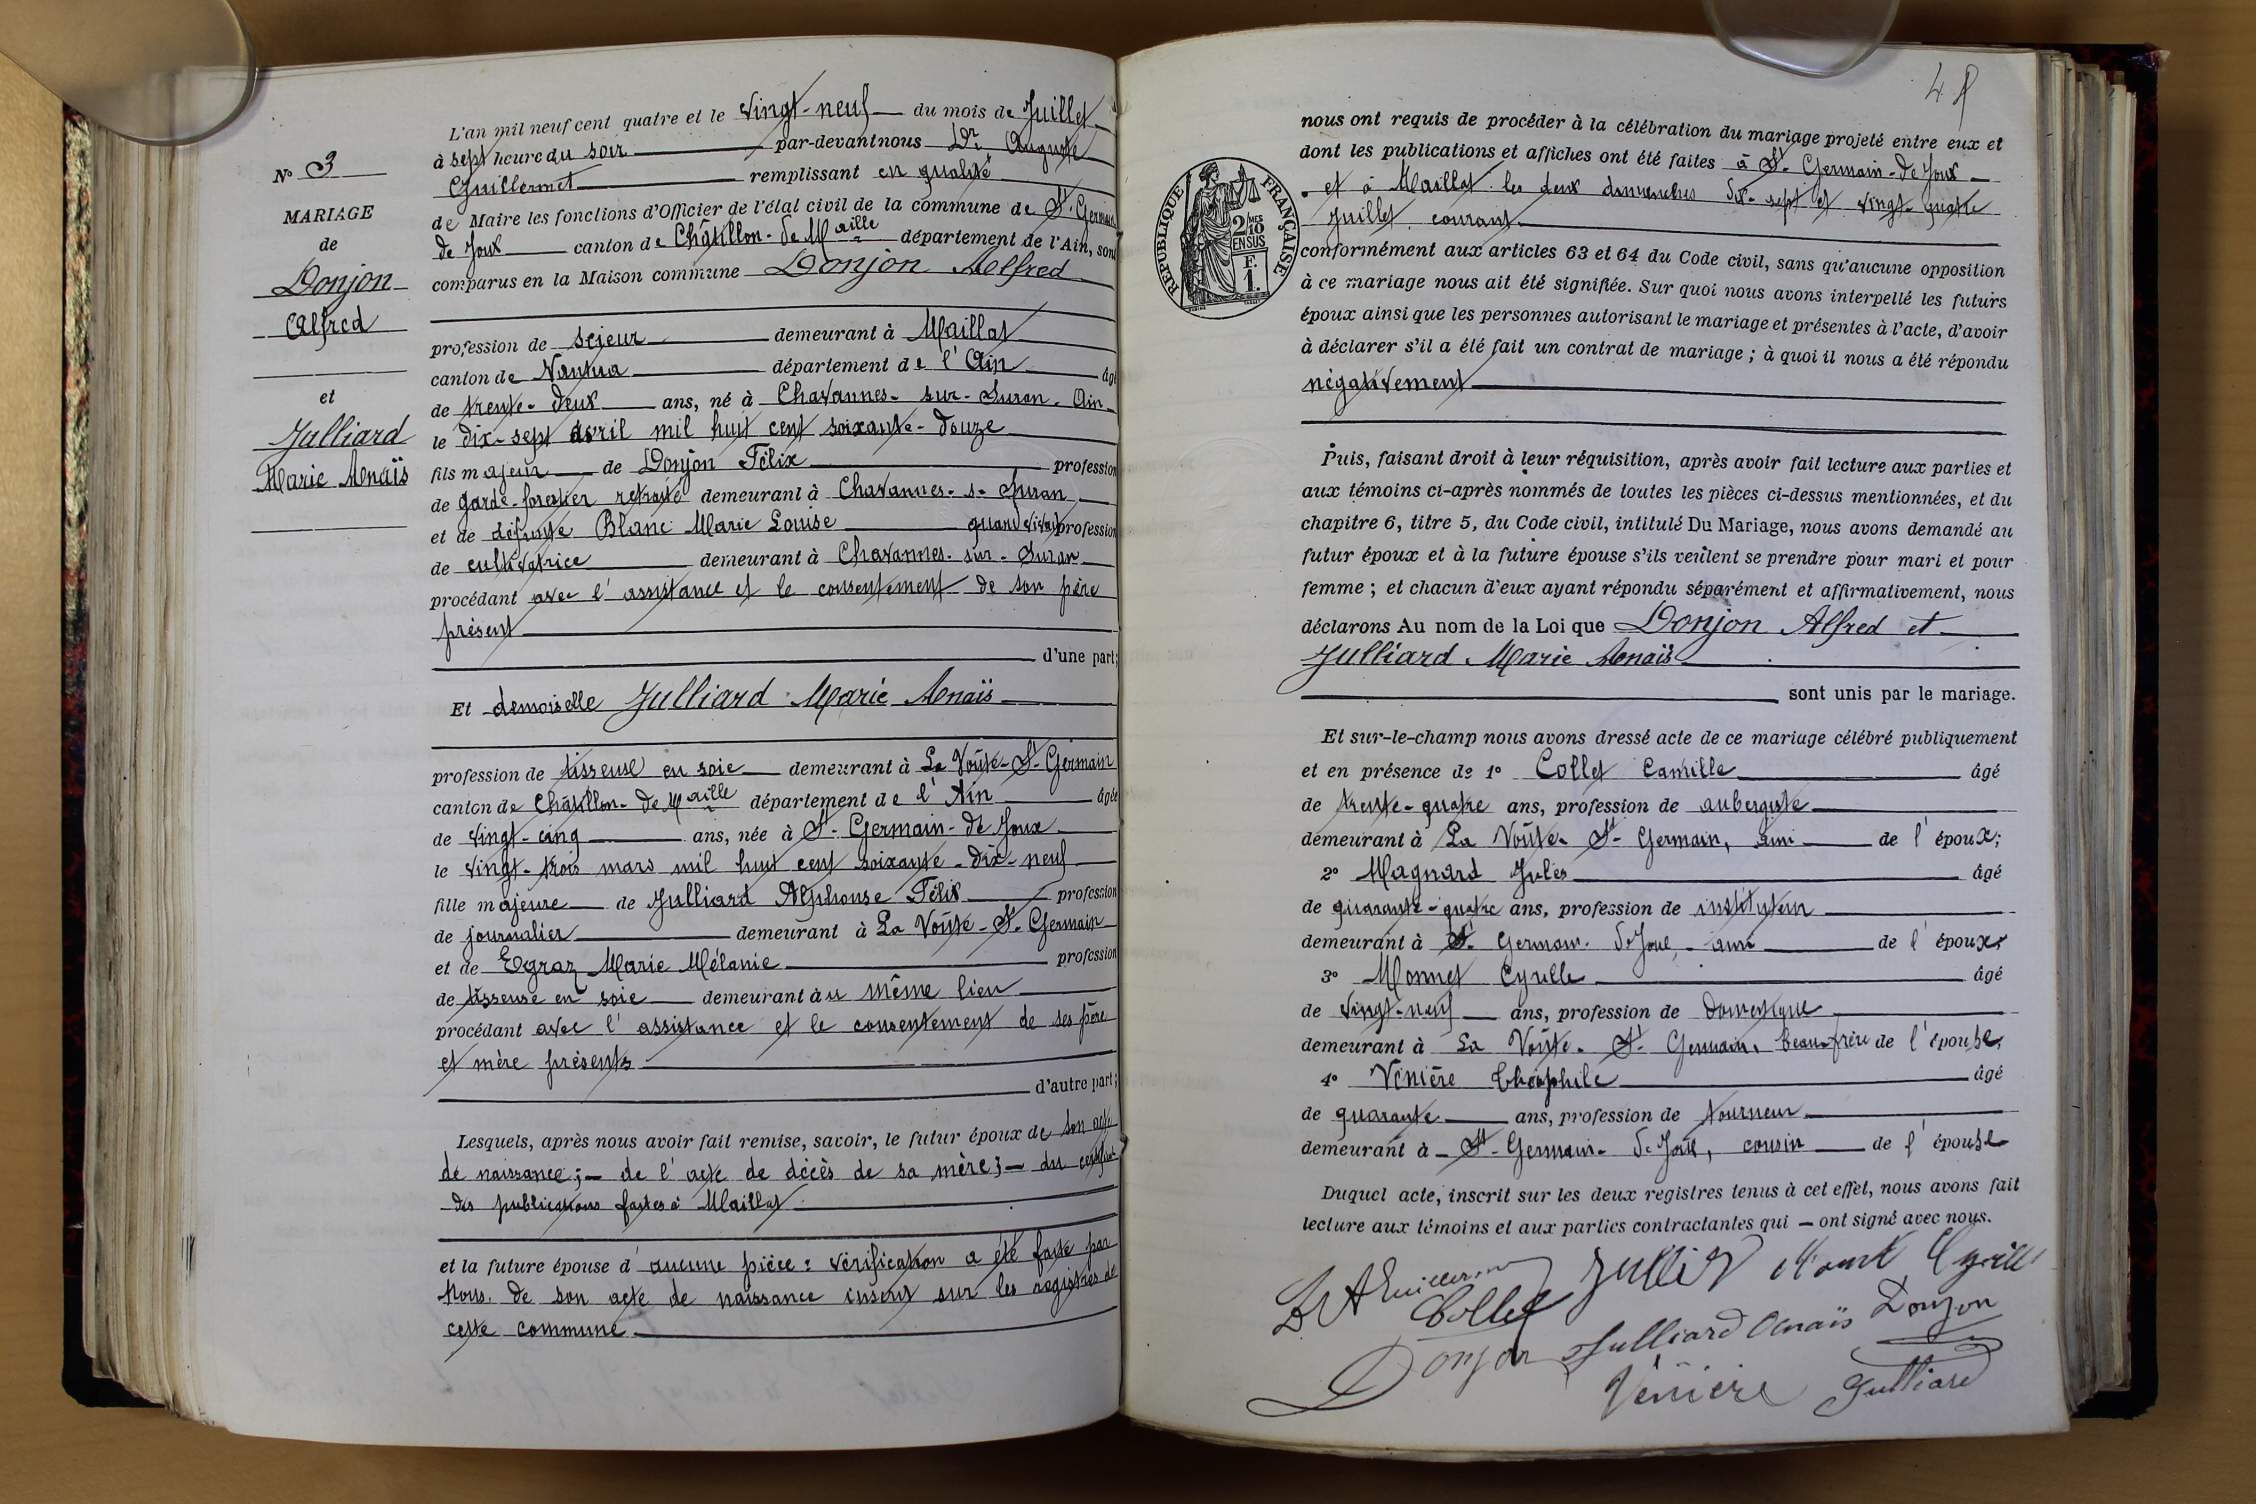 L'an mil neuf cent quatre et le vingt-neuf du mois de Juillet
à sept heure du soir par-devant nous Dr Auguste
N° 3
Guillermet remplissant en qualité
MARIAGE
de
Donjon
Alfred
et
Julliard
Marie Anaïs
de Maire les fonctions d'Officier de l'état civil de la commune de St-Germain
de Joux canton de Châtillon-de-Maille département de l'Ain, sont
comparus en la Maison commune Donjon Alfred
profession de scieur demeurant à Maillat
canton de Nantua département de l'Ain âgé
de trente-deux ans, né à Chavannes-sur-Suran-Ain
le dix-sept avril mil huit cent soixante-douze
fils majeur de Donjon Félix profession
de garde-forestier retraité demeurant à Chavannes-s-Suran
et de défunte Blanc Marie Louise quand vivait profession
de cultivatrice demeurant à Chavannes-sur-Suran
procédant avec l'assistance et le consentement de son père
présent
d'une part;
Et demoiselle Julliard Marie Anaïs
profession de tisseuse en soie demeurant à La Voûte-St-Germain
canton de Châtillon-de-Maille département de l'Ain âgée
de vingt-cinq ans, née à St-Germain-de-Joux
le vingt-trois mars mil huit cent soixante-dix-neuf
fille majeure de Julliard Alphonse Félix profession
de journalier demeurant à La Voûte-St-Germain
et de Egraz Marie Mélanie profession
de tisseuse en soie demeurant au même lieu
procédant avec l'assistance et le consentement de ses père
et mère présents
d'autre part;
Lesquels, après nous avoir fait remise, savoir, le futur époux de son acte
de naissance;- de l'acte de décès de sa mère;- du certificat
des publications faites à Maillat
et la future épouse d'aucune pièce: vérification a été faite par
Nous, de son acte de naissance inscrit sur les registres de
cette commune
48
nous ont requis de procéder à la célébration du mariage projeté entre eux et
dont les publications et affiches ont été faites à St-Germain-de-Joux
et à Maillat les deux dimanches dix-sept et vingt-quatre
Juillet courant
RÉPUBLIQUE FRANÇAISE
2/10MES
EN SUS
F.
1.
conformément aux articles 63 et 64 du Code civil, sans qu'aucune opposition
à ce mariage nous ait été signifiée. Sur quoi nous avons interpellé les futurs
époux ainsi que les personnes autorisant le mariage et présentes à l'acte, d'avoir
à déclarer s'il a été fait un contrat de mariage; à quoi il nous a été répondu
négativement
Puis, faisant droit à leur réquisition, après avoir fait lecture aux parties et
aux témoins ci-après nommés de toutes les pièces ci-dessus mentionnées, et du
chapitre 6, titre 5, du Code civil, intitulé Du Mariage, nous avons demandé au
futur époux et à la future épouse s'ils veulent se prendre pour mari et pour
femme; et chacun d'eux ayant répondu séparément et affirmativement, nous
déclarons Au nom de la Loi que Donjon Alfred et
Julliard Marie Anaïs
sont unis par le mariage.
Et sur-le-champ nous avons dressé acte de ce mariage célébré publiquement
et en présence de 1° Collet Camille âgé
de trente-quatre ans, profession de aubergiste
demeurant à La Voûte-St-Germain, ami de l'époux;
2° Magnard Jules âgé
de quarante-quatre ans, profession de instituteur
demeurant à St-Germain-de-Joux, ami de l'époux;
3° Monnet Cyrille âgé
de vingt-neuf ans, profession de domestique
demeurant à La Voûte-St-Germain, beau-frère de l'épouse;
4° Vénière Théophile âgé
de quarante ans, profession de tourneur
demeurant à St-Germain-de-Joux, cousin de l'épouse
Duquel acte, inscrit sur les deux registres tenus à cet effet, nous avons fait
lecture aux témoins et aux parties contractantes qui - ont signé avec nous.
Dr A Guillermet Cyrille
Collet Julliard Anaïs Donjon
Donjon Vénière Julliard